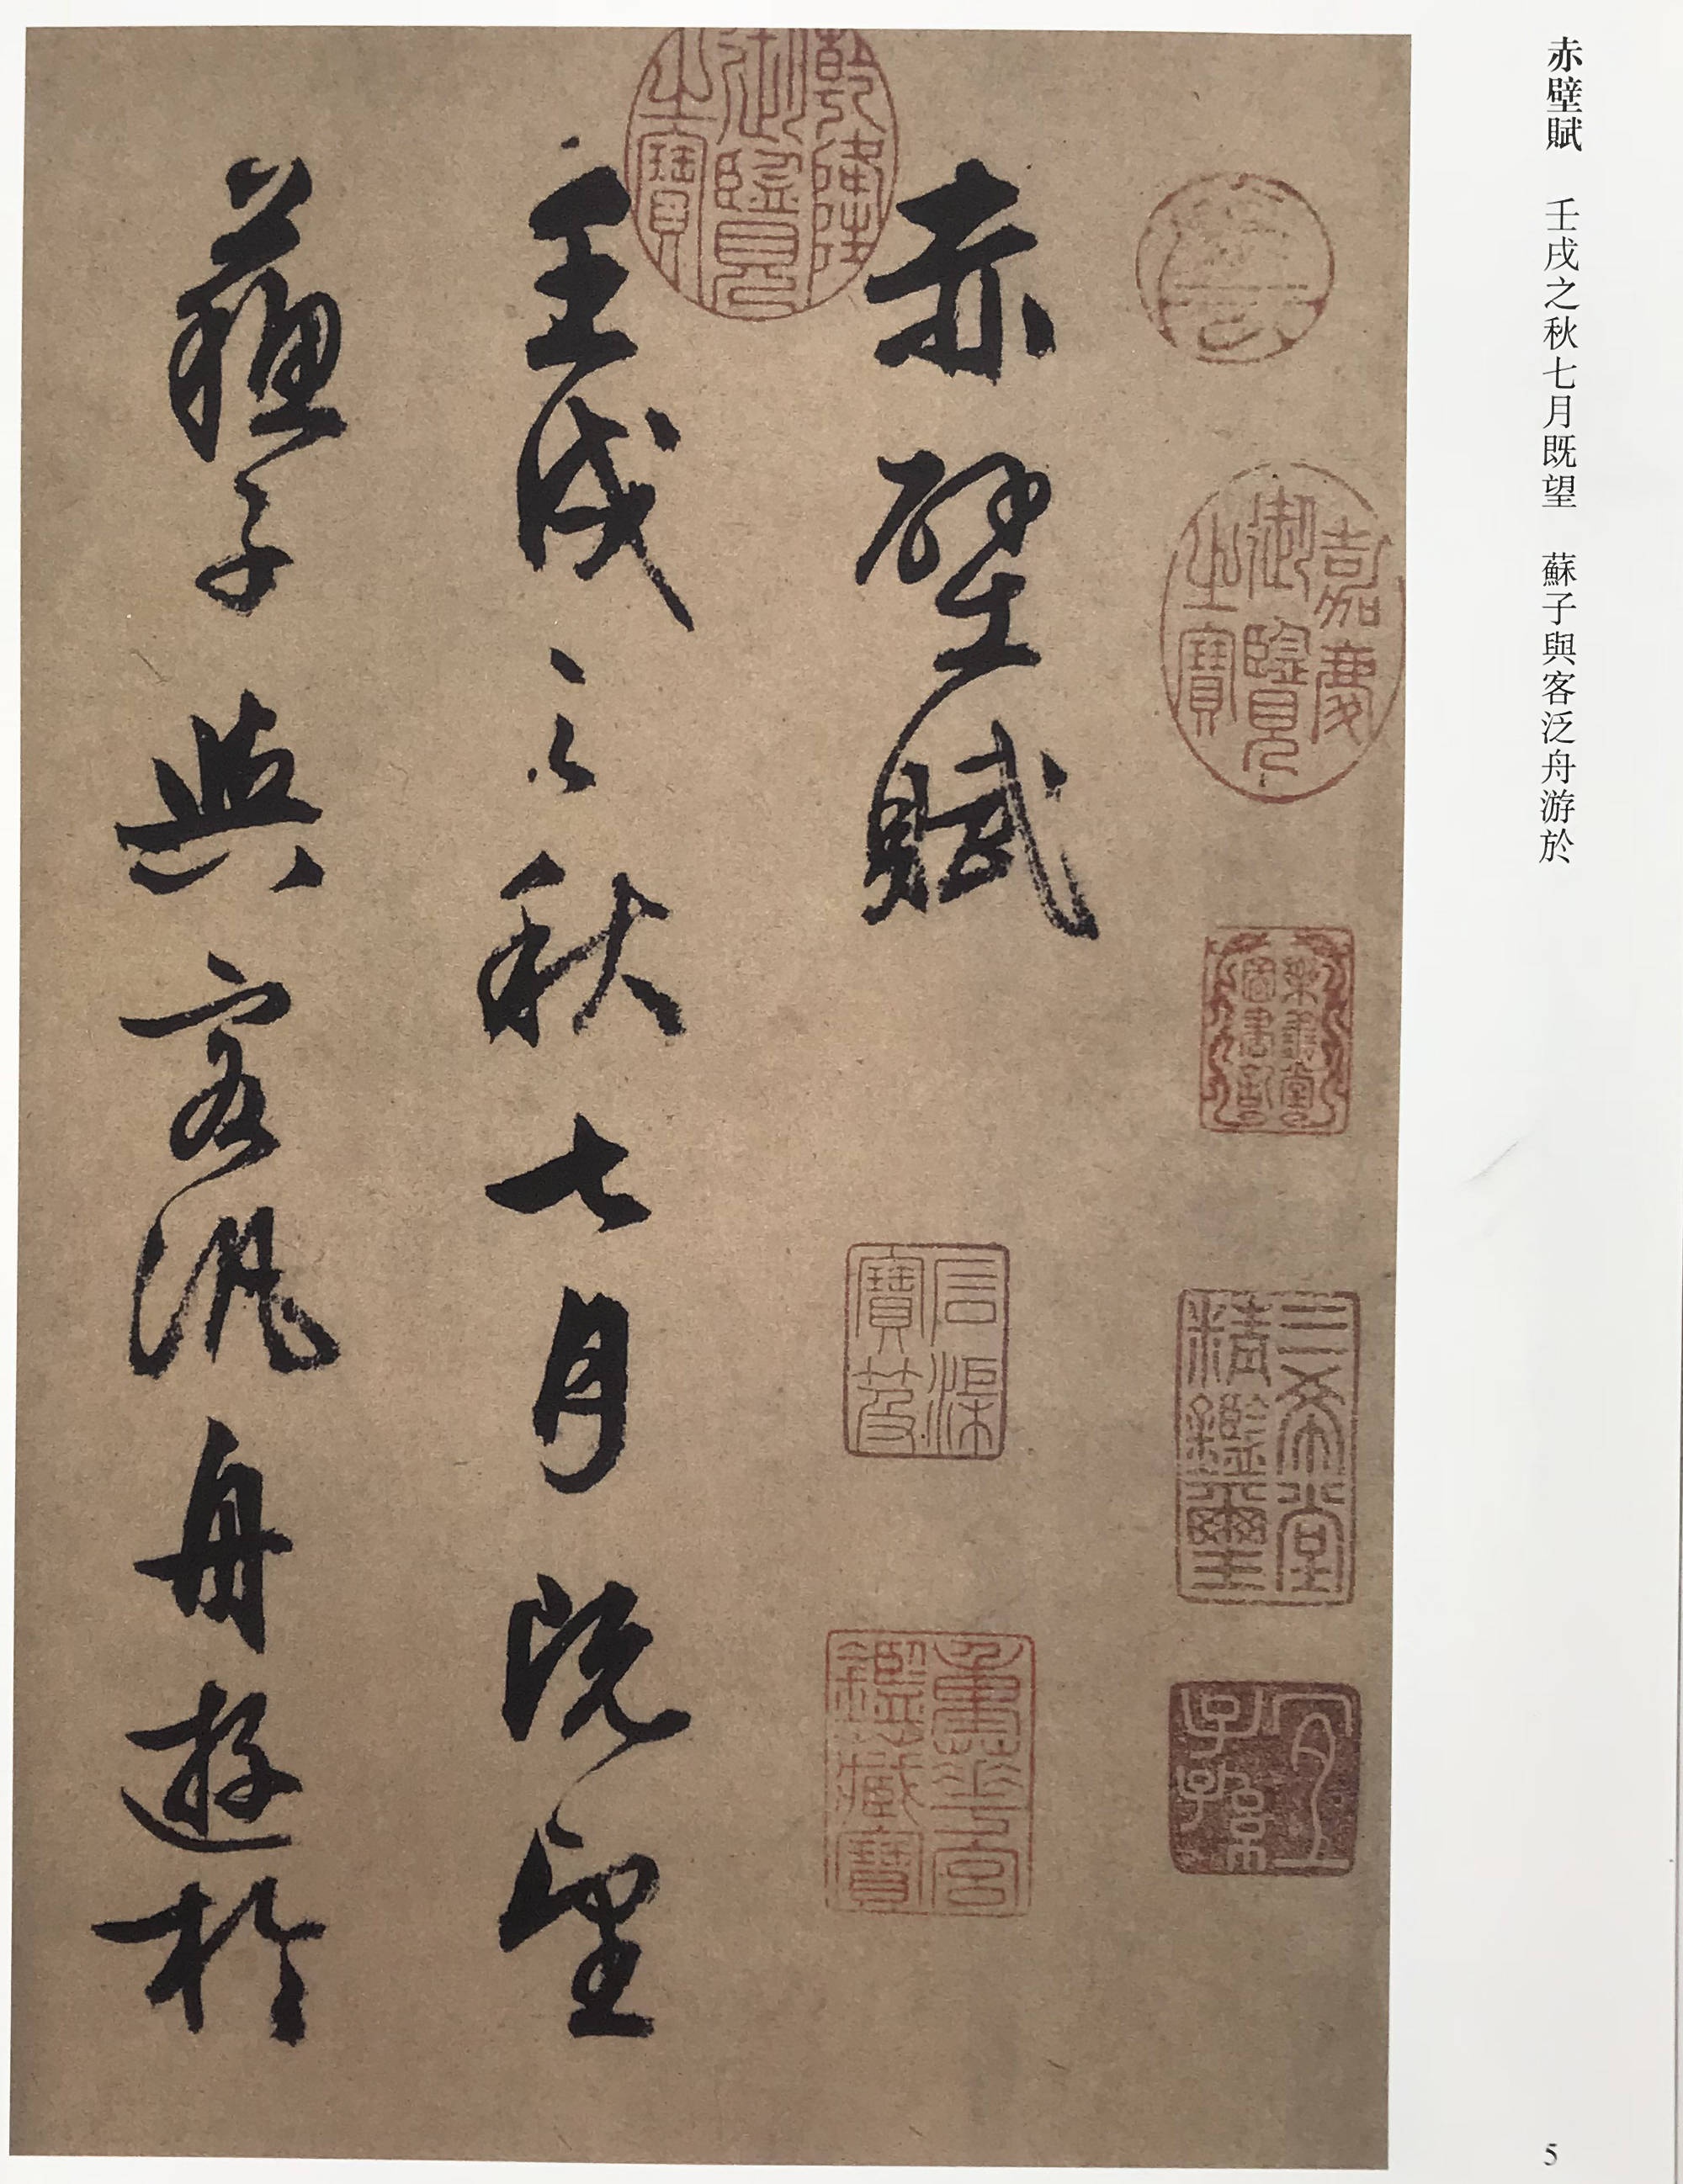 赤壁賦　壬戌之秋七月既望　蘇子與客泛舟游於
嘉慶御覽之寶
樂善堂圖書記
三希堂精鑑璽
宜子孫
乾隆御覽之寶
赤壁賦
重華宮鑑藏寶
壬戌之秋七月既望
蘇子與客汎舟遊於
5